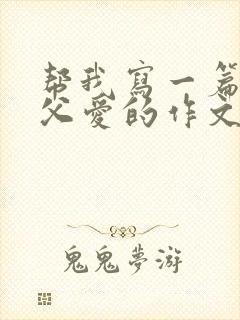 帮我寫一篇
父愛的作文
鬼鬼夢游